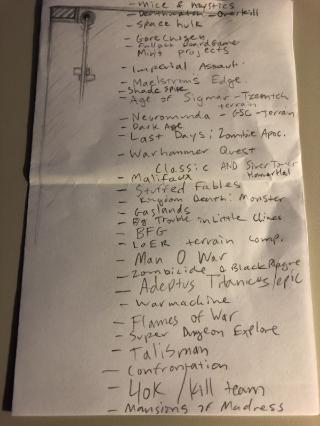 - mice & mystics
- Deathwatch - Overkill
- Space hulk
- Gorechosen
- Fallout boardGame
Minis projects
- Imperial Assault.
- Maelstroms Edge.
- Shade Spire
- Age of Sigmar - Tzeentch
terrain
- Necromunda - GSC - Terrain
- Dark Age
- Last Days: Zombie Apoc.
- Warhammer Quest
Classic AND Silver Tower
- Malifaux HamerHal
- Stuffed Fables
- Kingdom Death: Monster
- Gaslands
- Big Trouble in Little China
- BFG
- LoER terrain comp.
- Man O War
- Zombicide & Black Plague
- Adeptus Titanicus/epic
- Warmachine
- Flames of War
- Super Dungeon Explore
- Talisman
- Confrontation
- 40K / kill team
- Mansions of Madness